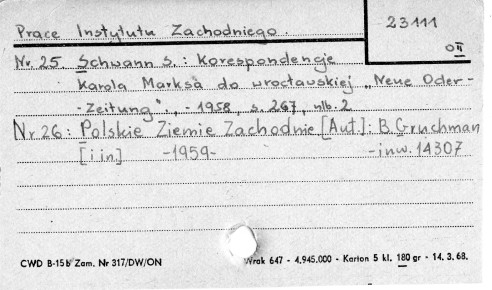 Prace Instytutu Zachodniego.
23111
OII
Nr. 25 Schwann S.: Korespondencje
Karola Marksa do wrocławskiej „Neue Oder-
-Zeitung", - 1958, s. 267, nlb. 2
Nr 26: Polskie Ziemie Zachodnie [Aut]: B. Gruchman
[i. in.] -1959- -inw. 14307
CWD B-15b Zam. Nr 317/DW/ON
Wrak 647 - 4.945.000 - Karton 5 kl. 180 gr - 14. 3. 68.